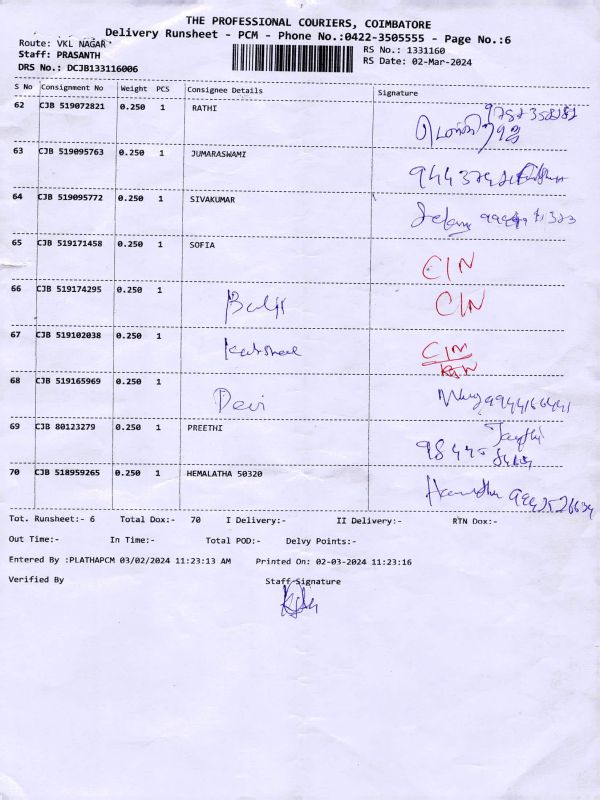 THE PROFESSIONAL COURIERS, COIMBATORE
Delivery Runsheet - PCM - Phone No.:0422-3505555 - Page No.:6
Route: VKL NAGAR
RS No.: 1331160
Staff: PRASANTH
RS Date: 02-Mar-2024
DRS No.: DCJB133116006
S No Consignment No Weight PCS Consignee Details Signature
62 CJB 519072821 0.250 1 RATHI
63 CJB 519095763 0.250 1 JUMARASWAMI
64 CJB 519095772 0.250 1 SIVAKUMAR
65 CJB 519171458 0.250 1 SOFIA CIN
66 CJB 519174295 0.250 1 CIN
67 CJB 519102038 0.250 1 CIN
68 CJB 519165969 0.250 1 Devi 9944166441
69 CJB 80123279 0.250 1 PREETHI
70 CJB 518959265 0.250 1 HEMALATHA 50320
Tot. Runsheet:- 6 Total Dox:- 70 I Delivery:- II Delivery:- RTN Dox:-
Out Time:- In Time:- Total POD:- Delvy Points:-
Entered By :PLATHAPCM 03/02/2024 11:23:13 AM Printed On: 02-03-2024 11:23:16
Verified By Staff Signature